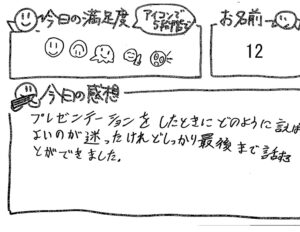 今日の満足度
アイコンで
5段階で
お名前
12
今日の感想
プレゼンテーションをしたときにどのように言えば
よいのが迷ったけれどしっかり最後まで話すこ
とができました。